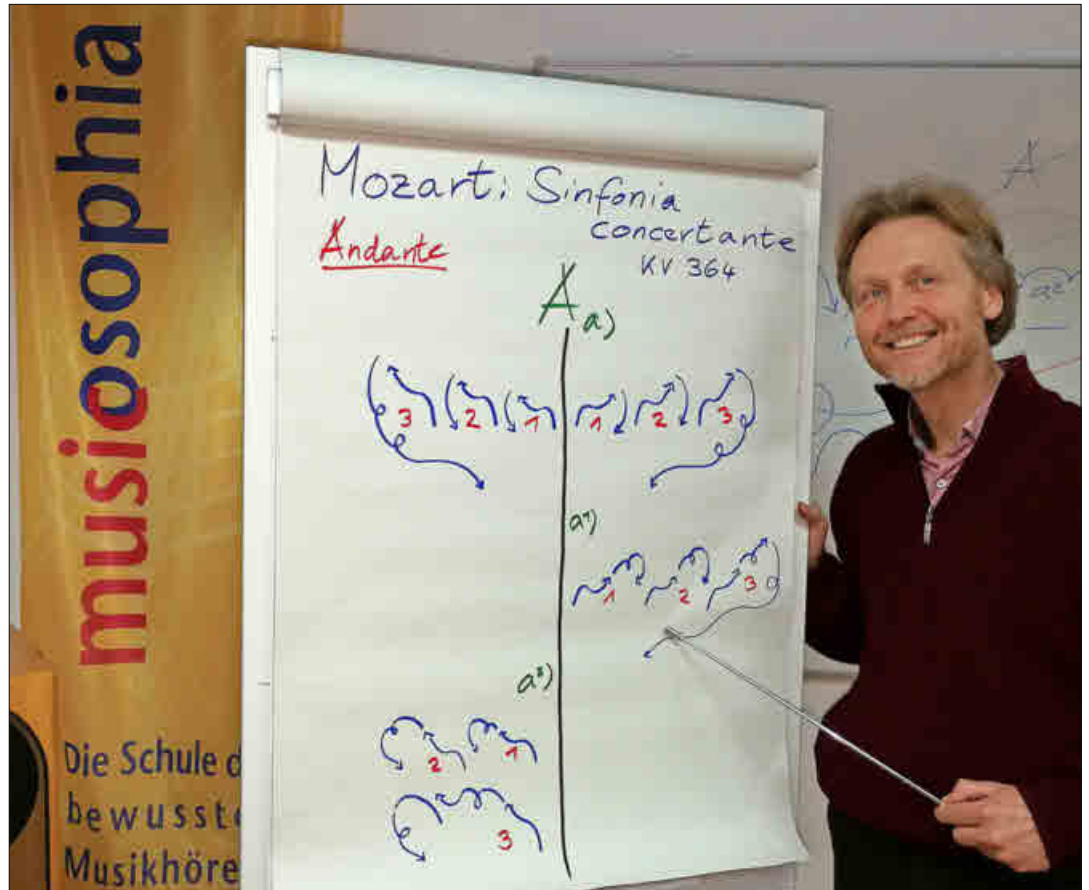 musicosophia
Die Schule d
bewusst
Musikhöre
Mozart: Sinfonia
concertante
KV 364
Andante
A
a)
3 2 1 1 2 3
a¹)
1 2 3
a²)
2 1
3
A
a²